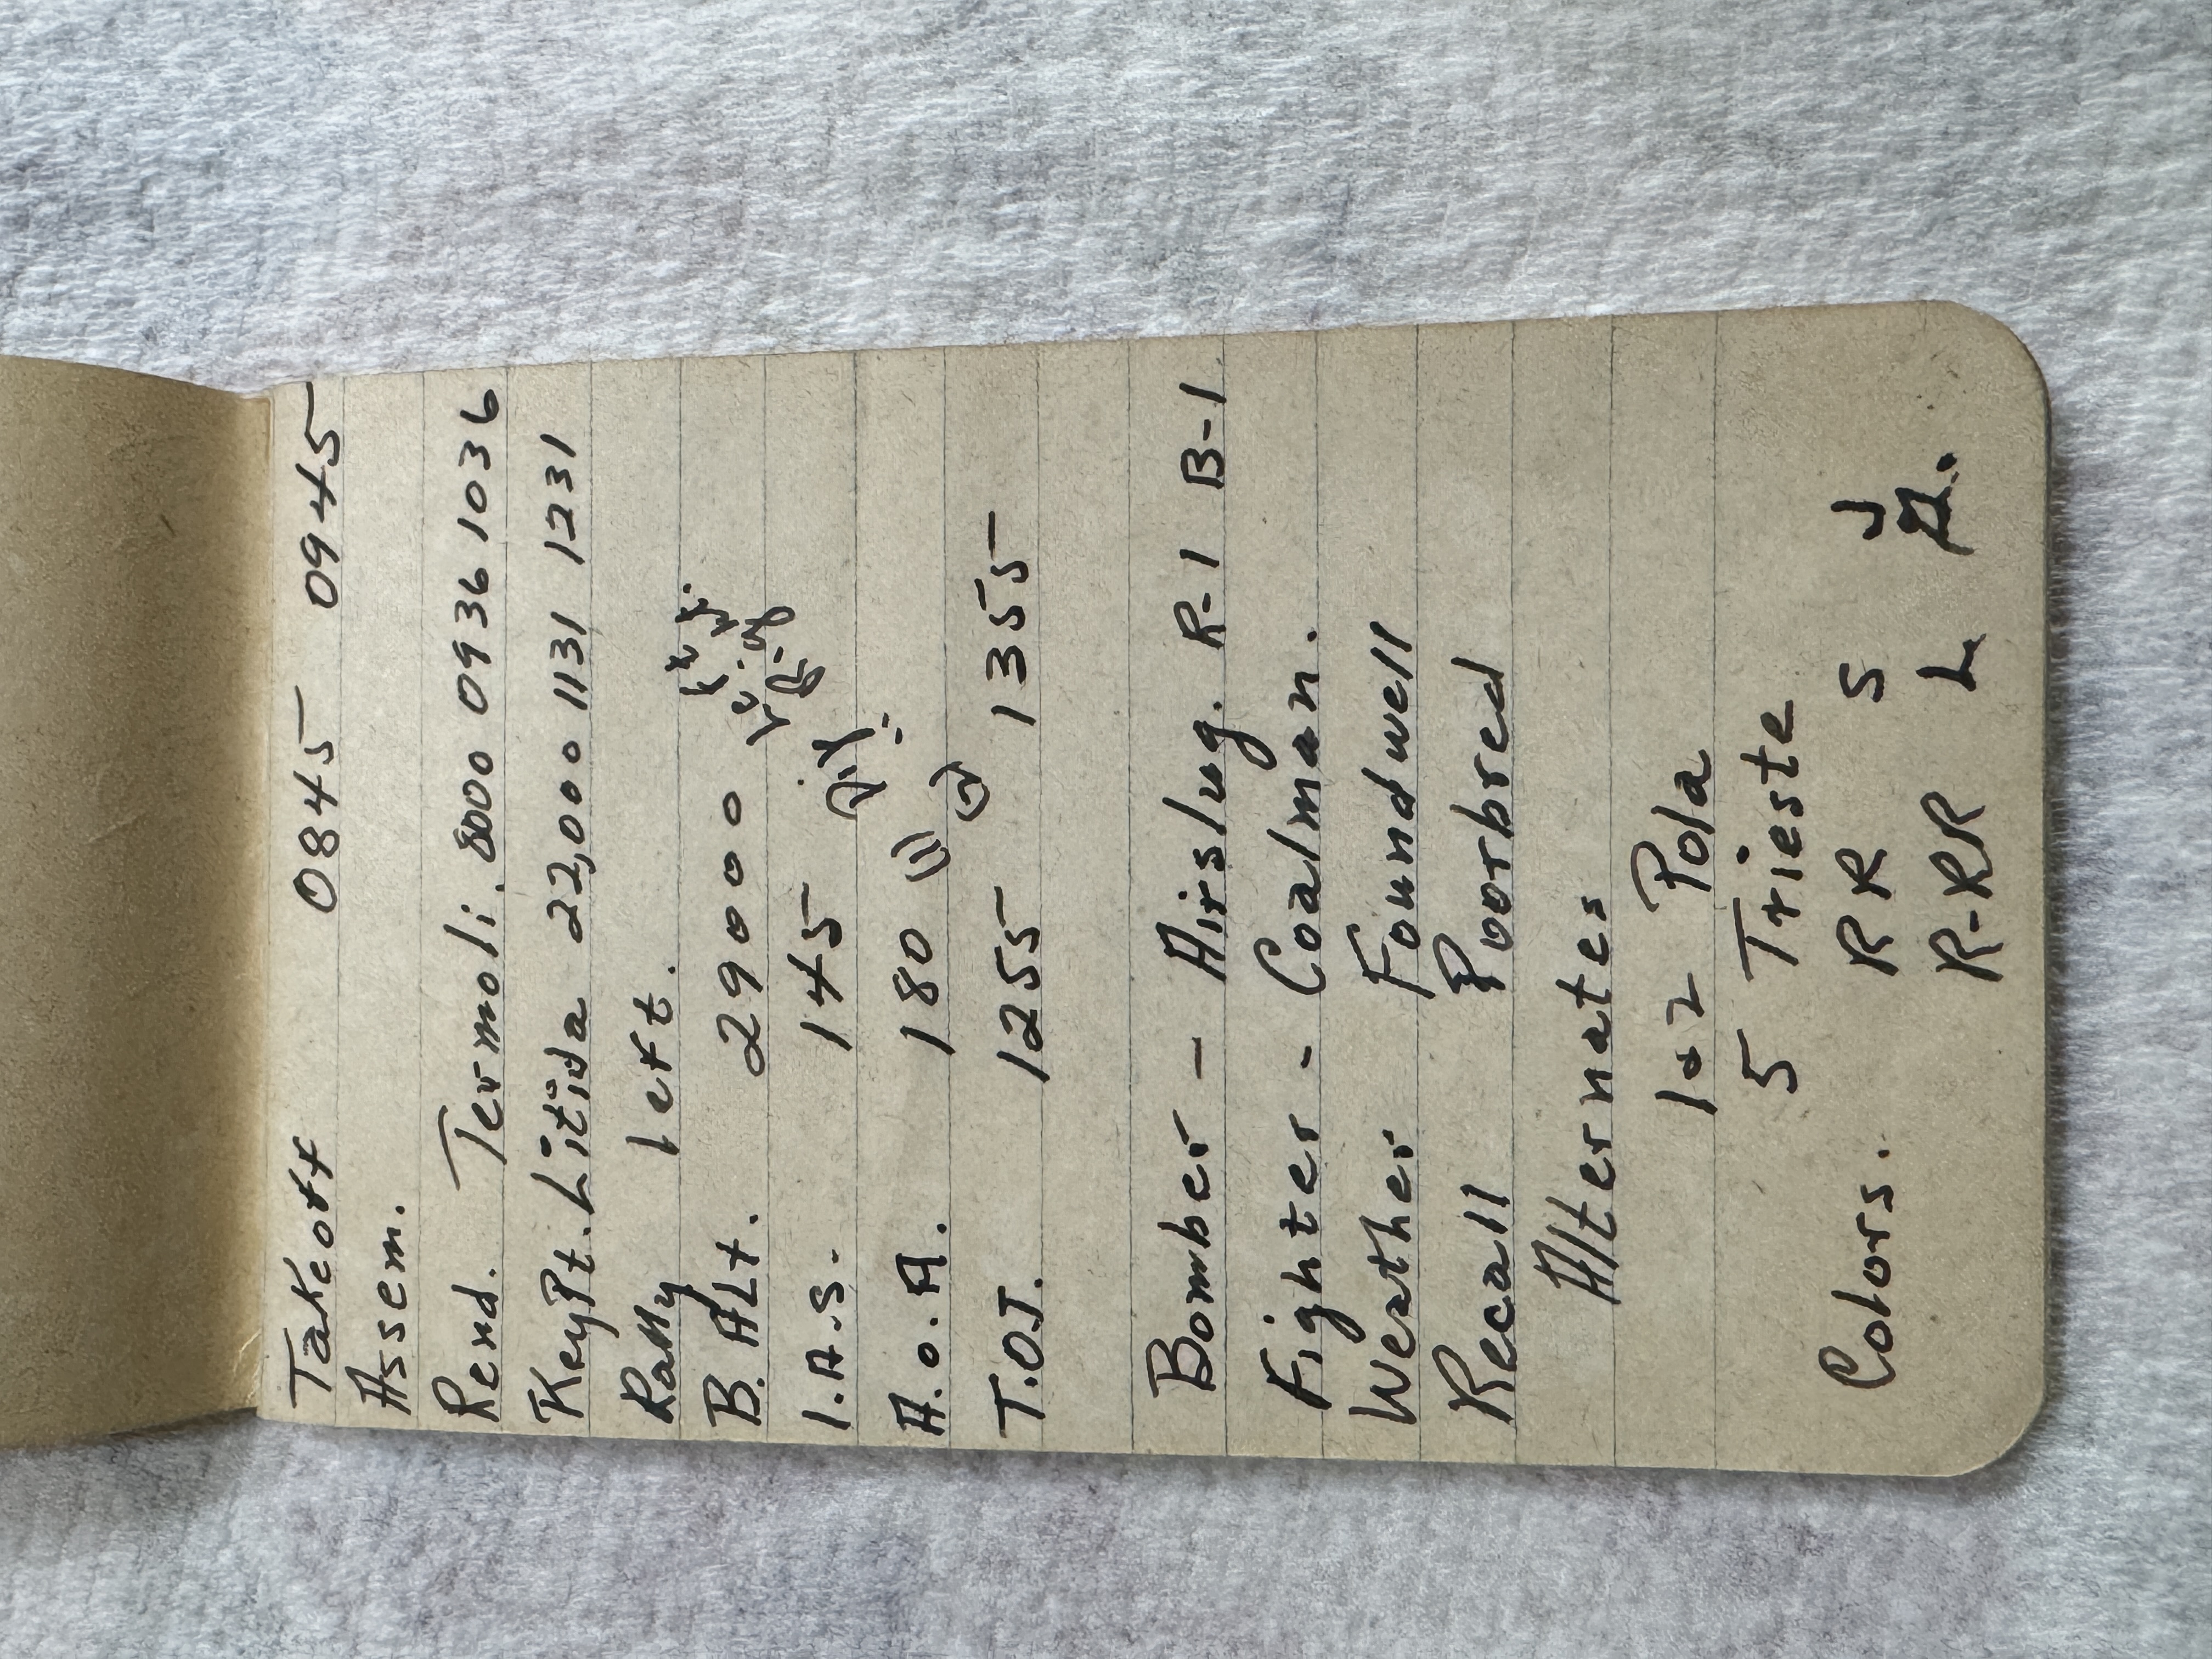 Takeoff 0845 0945
Assem.
Rend. Termoli. 8000 0936 1036
Key Pt. Litija 22,000 1131 1231
Rally left.
B. Alt. 29000
I.A.S. 145
A.O.A. 180
T.O.T. 1255 1355
Bomber - Airslug. R-1 B-1
Fighter - Coalman.
Weather Foundwell
Recall Poorbred
Alternates
1 & 2 Pola
5 Trieste
Colors. RR S J
R-RR L